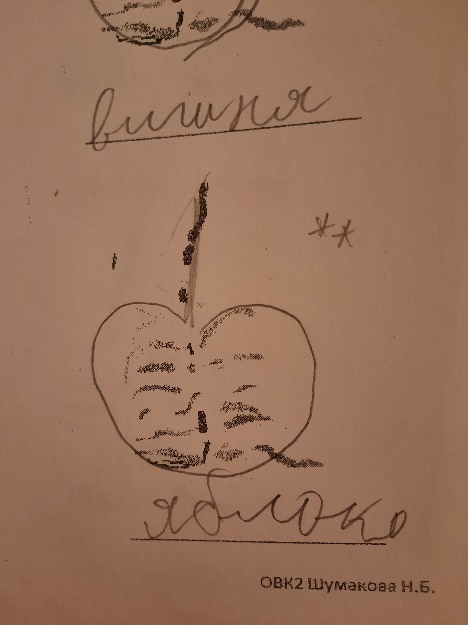 вишня
**
яблоко
ОВК2 Шумакова Н.Б.